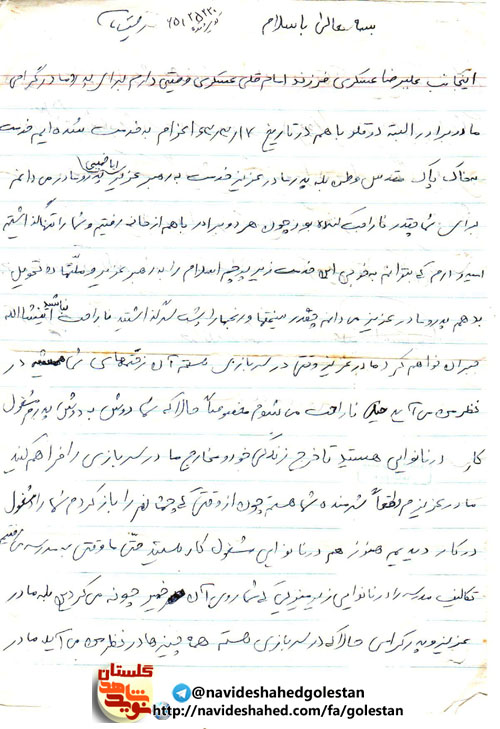 بسمه تعالی با سلام
اینجانب علیرضا عسکری فرزند امام قلی عسکری وصیتی دارم برای پدر و مادر گرامی
ما دو برادر البته دوقلو با هم در تاریخ اعزام به خدمت شده ایم خدمت
به خاک پاک مقدس وطن بله پدر و مادر عزیز خدمت به رهبر عزیز پدر و مادر می دانم
برای شما چقدر ناراحت کننده بود چون هر دو برادر با هم از خانه رفتیم و شما را تنها گذاشتیم
امیدوارم که بتوانم به خوبی این خدمت زیر پرچم اسلام را به رهبر عزیز و ملتها تحویل
بدهم پدر و مادر عزیز می دانم چقدر سختیها و رنجها را پشت سر گذاشتید ناراحت نباشید انشاالله
جبران خواهم کرد مادر عزیز وقتی در سربازی هستم آن زحمتهای شما همیشه در
نظر من می آید خیلی ناراحت می شوم مخصوصاً حالا که شما دوش به دوش پدرم مشغول
کار در نانوایی هستید تا خرج زندگی خود و مخارج ما در سربازی را فراهم کنید
مادر عزیزم واقعاً شرمنده شما هستم چون از وقتی که چشمانم را باز کردم شما را مشغول
در کار دیدم هنوز هم در نانوایی مشغول کار هستید حتی ما وقتی به مدرسه می رفتیم
تکالیف مدرسه را در نانوایی زیر میزی که شما روی آن خمیر چونه می کردید بله مادر
عزیز و پدر گرامی حالا که در سربازی هستم همه چیزها در نظر من می آید مادر
گلستان
نوید شاهد
@navideshahedgolestan
http://navideshahed.com/fa/golestan